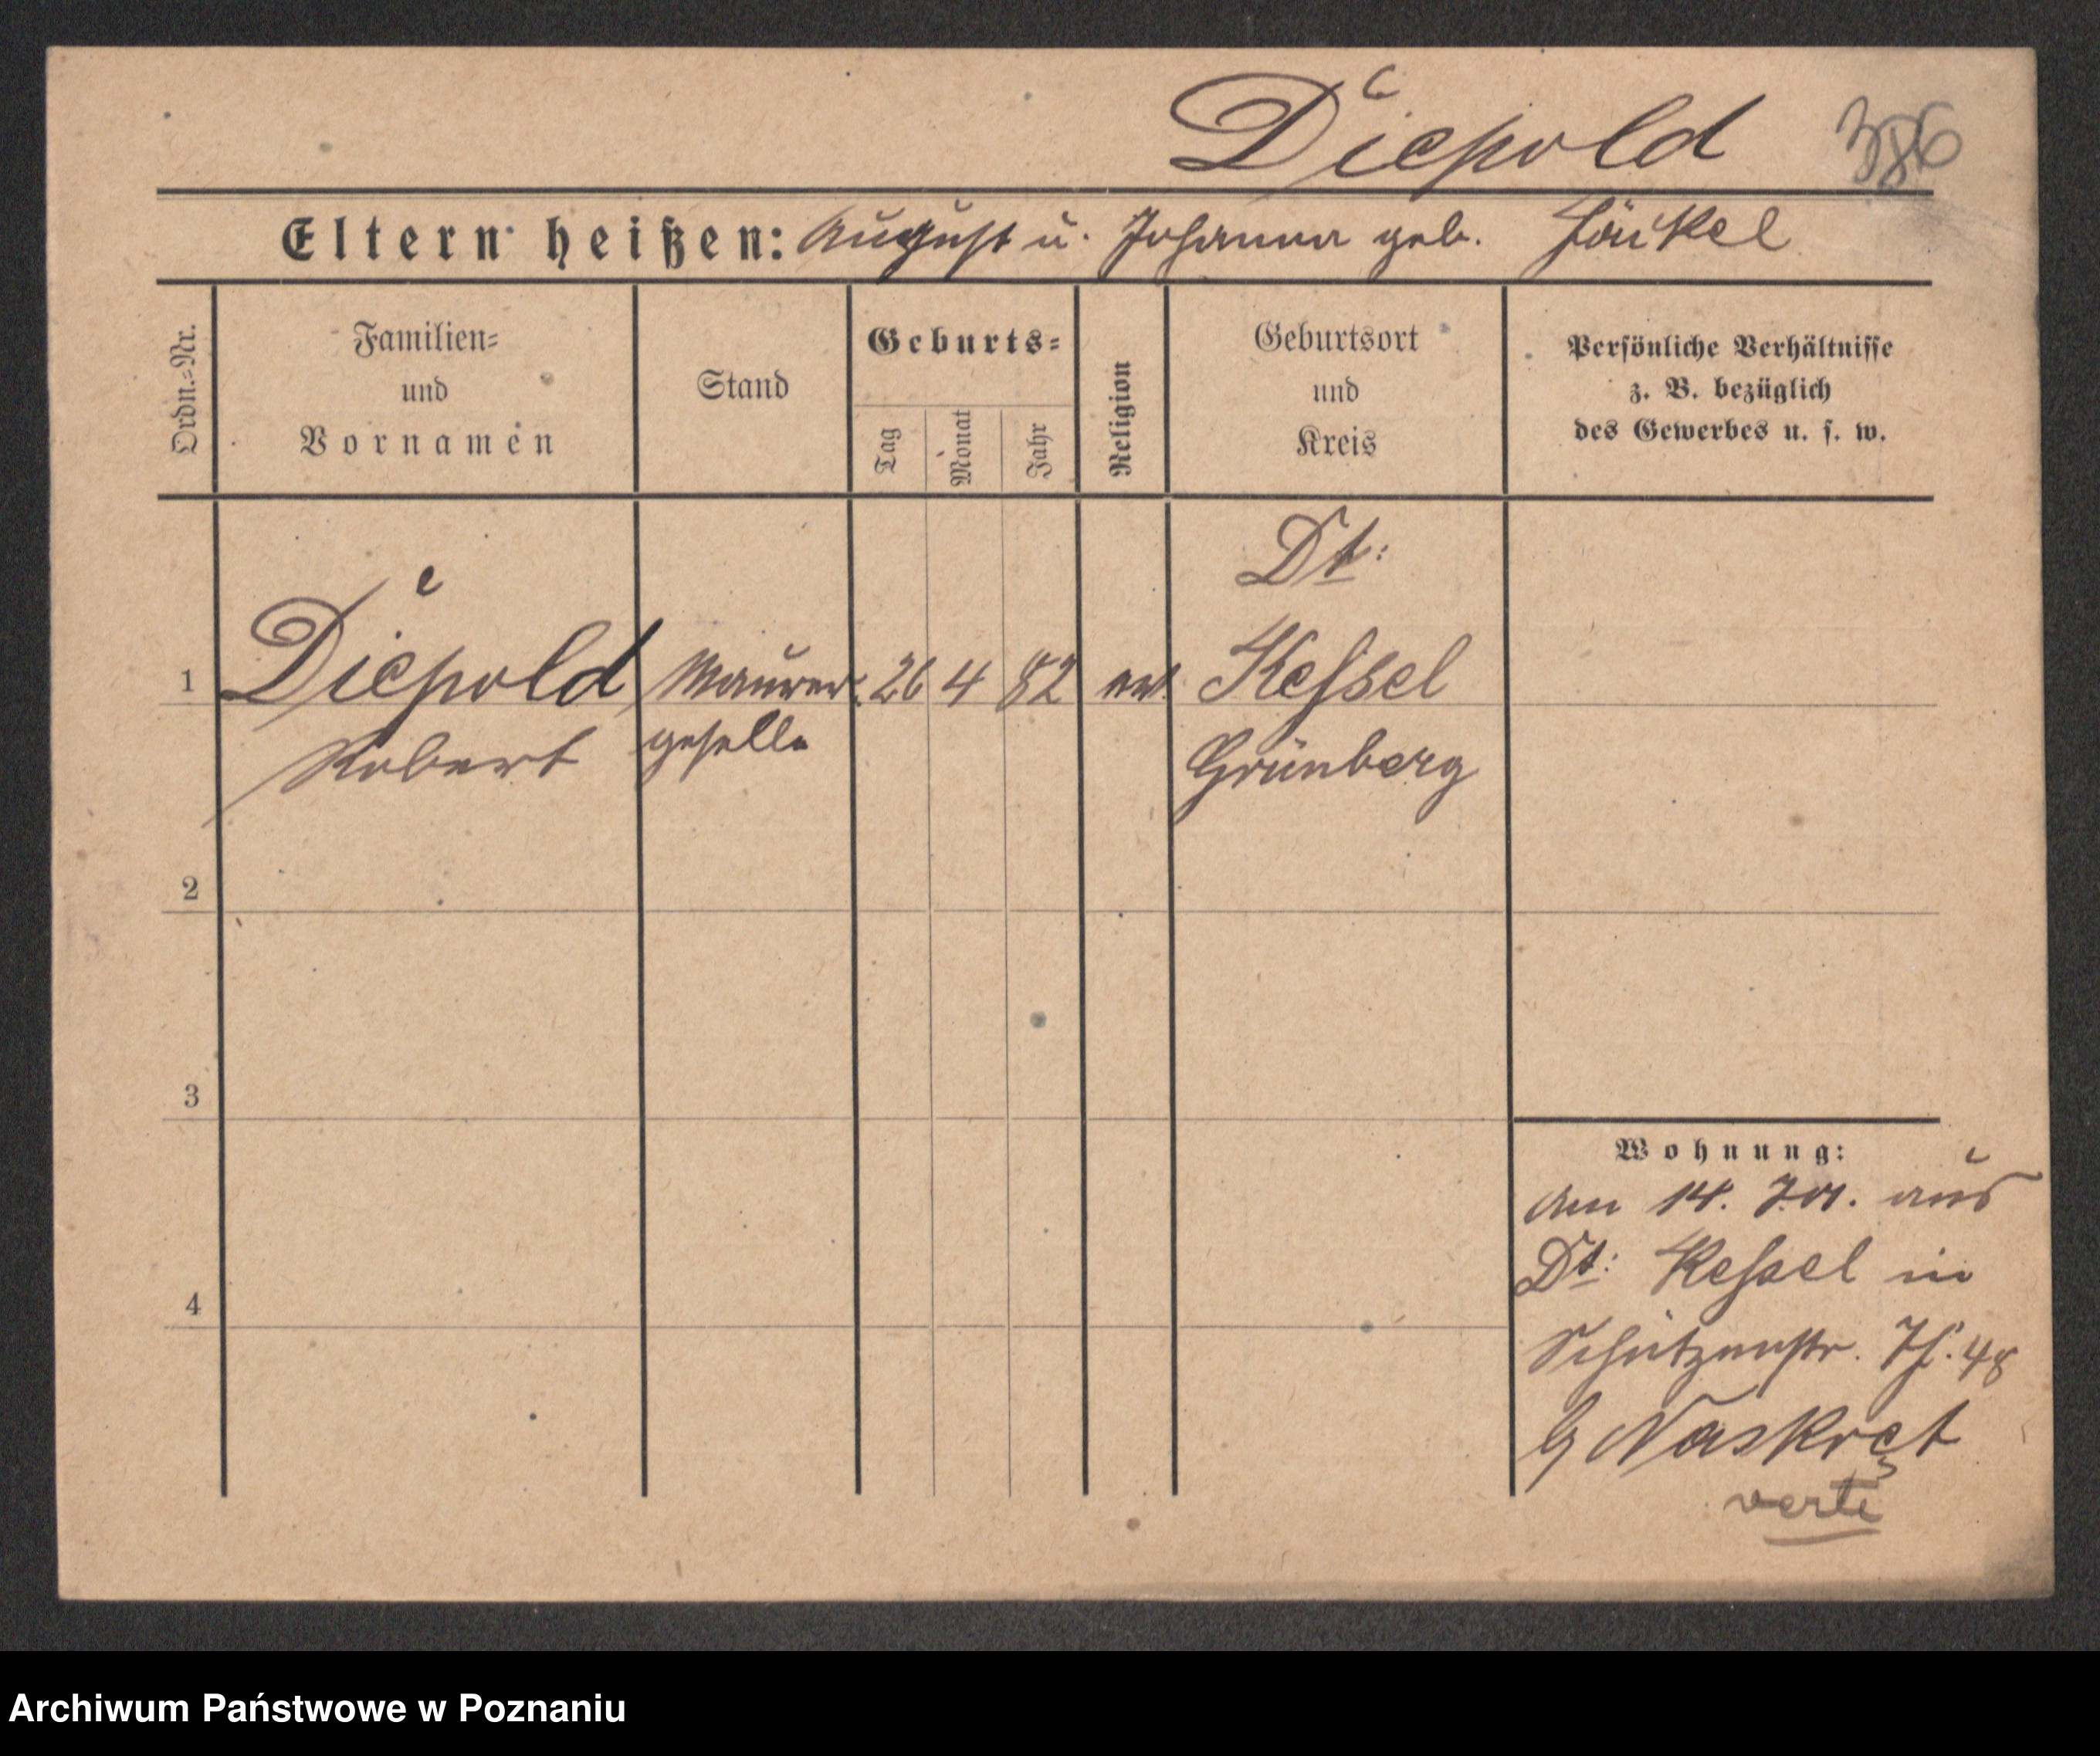 Diepold 386
Eltern heißen: August u. Johanna geb. Jäckel
Ordn.=Nr.
Familien=
und
Vornamen
Stand
Geburts=
Tag
Monat
Jahr
Religion
Geburtsort
und
Kreis
Persönliche Verhältnisse
z. B. bezüglich
des Gewerbes u. s. w.
Dt:
1 Diepold Maurer= 26 4 82 ev. Kessel
Robert geselle Grünberg
2
3
4
Wohnung:
Am 14. 7. 01. aus
Dt: Kessel in
Schützenstr. 48
b/ Naskręt
verte
Archiwum Państwowe w Poznaniu